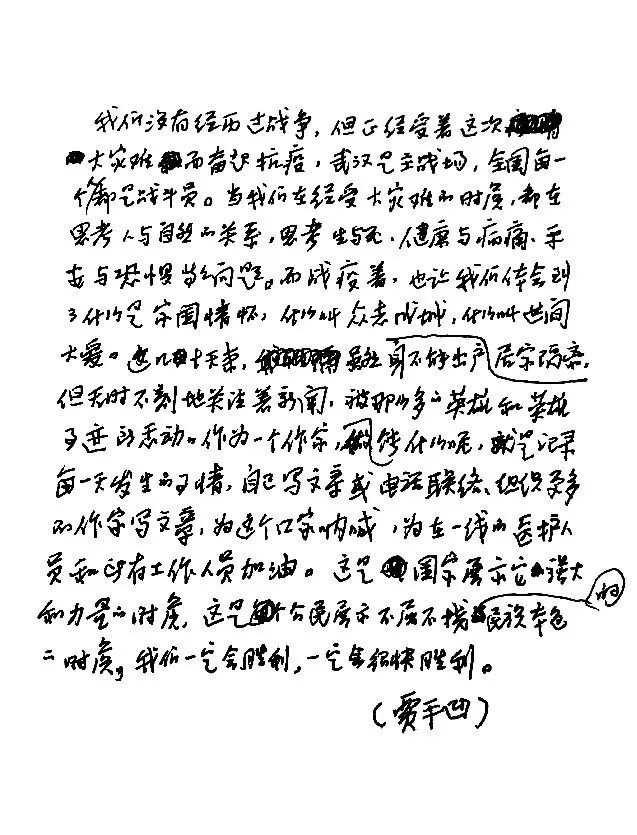 我们没有经历过战争，但正经受着这次
大灾难而奋起抗疫，武汉是主战场，全国每一
个都是战斗员。当我们在经受大灾难的时候，都在
思考人与自然的关系，思考生与死、健康与病痛、平
安与恐惧等等问题。而战疫着，也让我们体会到
了什么是家国情怀，什么叫众志成城，什么叫世间
大爱。这几十天来，虽然自己不能出户居家隔离，
但无时不刻地关注着新闻，被那么多的英雄和英雄
事迹所感动。作为一个作家，能做什么呢，就是记录
每一天发生的事情，自己写文章或电话联络、组织更多
的作家写文章，为这个国家呐喊，为在一线的医护人
员和所有工作人员加油。这是国家展示它强大
和力量的时候，这是每个公民展示不屈不挠的民族本色
的时候，我们一定会胜利，一定会很快胜利。
（贾平凹）